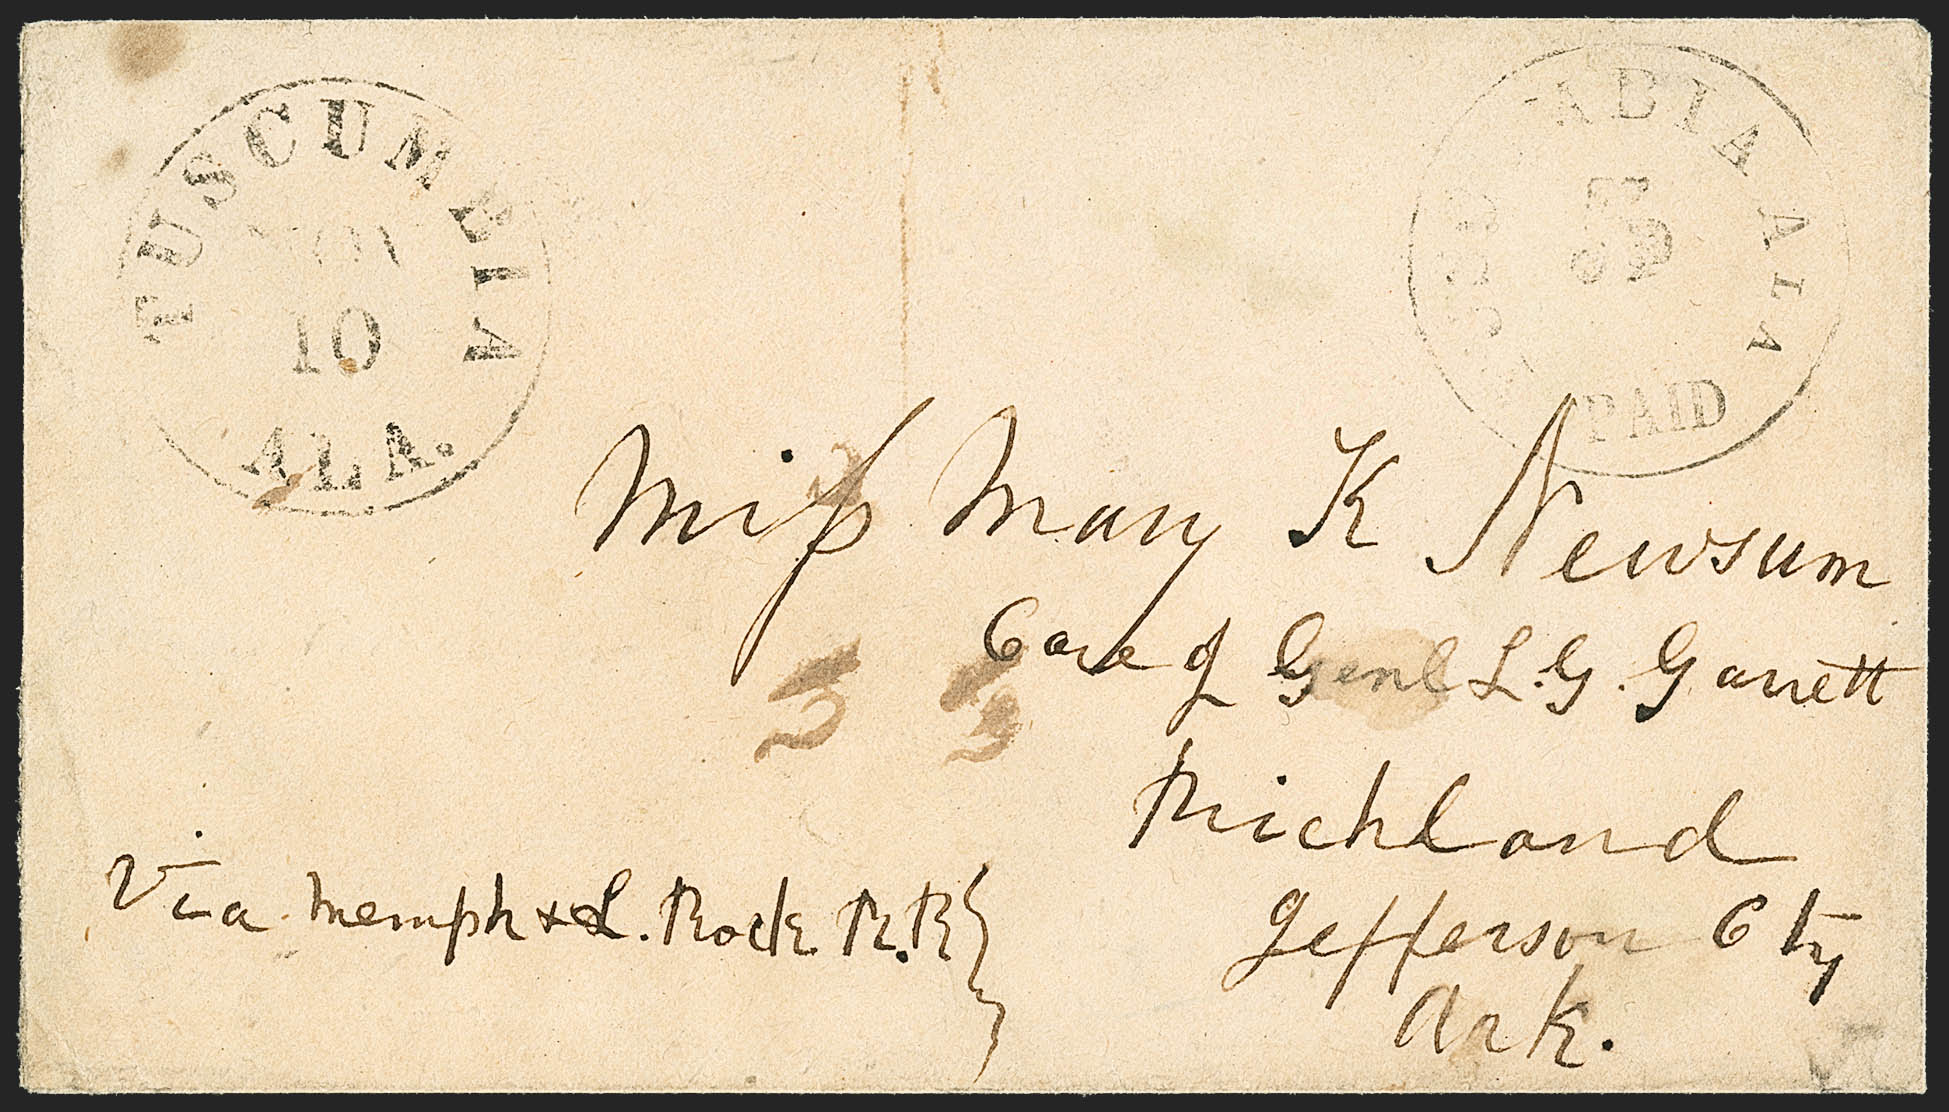 TUSCUMBIA
10
ALA.
ALA
PAID
Miss Mary K Newsum
Care of Genl L. G. Garrett
Richland
Jefferson Cty
Ark.
Via Memph & L. Rock R.R